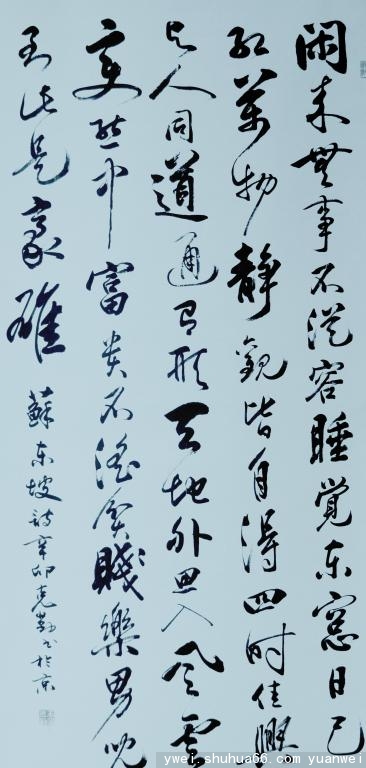 閑来無事不從容睡覺东窓日已
红萬物靜觀皆自得四时佳興
与人同道通有形天地外思入风雲
变態中富貴不淫貧賤樂男児
到此是豪雄
蘇东坡詩辛卯克勤书於京
ywei.shuhua66.com yuanwei